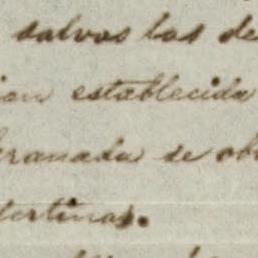 salvos las de
ian establecida
Granada se ob
tertinas.